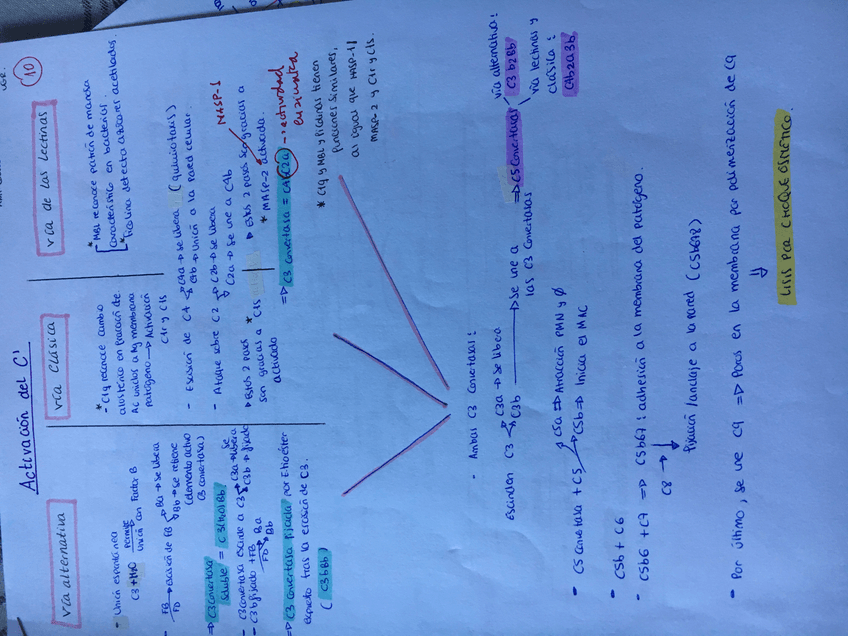 Activación del C'
10
vía alternativa
- Unión espontánea
C3 + H2O permite unión con Factor B
- FB → Escisión de FB → Ba → se libera
FD
Bb → se retiene
(elemento activo
C3 convertasa)
⇒ C3 convertasa
soluble = C3(H2O)Bb
- C3 convertasa escinde a C3 → C3a → se libera
C3b → fijado
- C3b fijado + FB → Ba
FD Bb
⇒ C3 convertasa fijada por tioéster
expuesto tras la escisión de C3.
(C3bBb)
vía clásica
*
- C1q reconoce cambio
alostérico en porción Fc
Ac unidos a Ag membrana
patógeno → Activación
C1r y C1s
vía de las lectinas
* MBL reconoce patrón de manosa
característico en bacterias.
* Ficolina detecta azúcares acetilados.
- Escisión de C4 → C4a → se libera (quimiotaxis)
C4b → Unión a la pared celular.
- Ataque sobre C2 → C2b → se libera
C2a → se une a C4b
→ Estos 2 pasos *
son gracias a C1s
activado
MASP-1
→ Estos 2 pasos son gracias a
* MASP-2 activada.
⇒ C3 convertasa = C4b C2a → actividad
enzimática
* C1q y MBL y Ficolinas tienen
funciones similares,
al igual que MASP-1/
MASP-2 y C1r y C1s.
- Ambas C3 convertasas:
Escinden C3 → C3a → se libera
C3b → se une a
las C3 convertasas
⇒ C5 convertasas
vía alternativa:
C3b2Bb
vía lectinas y
clásica:
C4b2a3b
- C5 convertasa + C5 → C5a ⇒ Atracción PMN y Ø
C5b ⇒ Inicia el MAC
- C5b + C6
- C5b6 + C7 ⇒ C5b67: adhesión a la membrana del patógeno.
C8 →
Fijación/anclaje a la pared (C5b678)
- Por último, se une C9 ⇒ Poros en la membrana por polimerización de C9
⇓
LISIS POR CHOQUE OSMÓTICO.